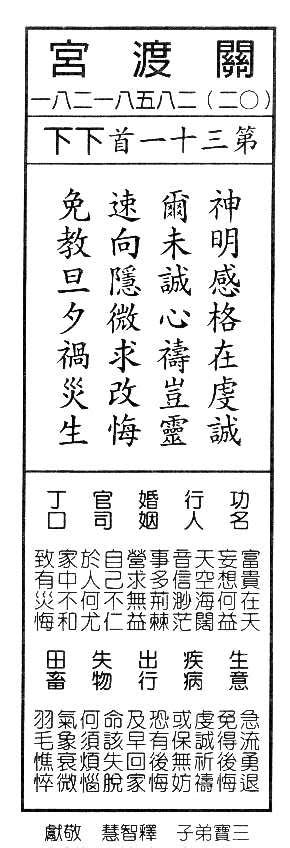 關渡宮
（〇二）二八五八一二八一
第三十一首下下
神明感格在虔誠
爾未誠心禱豈靈
速向隱微求改悔
免教旦夕禍災生
功名
富貴在天
妄想何益
行人
天空海闊
音信渺茫
婚姻
事多荊棘
營求無益
官司
自己不仁
於人何尤
丁口
家中不和
致有災悔
生意
急流勇退
免得後悔
疾病
虔誠祈禱
或保無妨
出行
恐有後悔
及早回家
失物
命該失脫
何須煩惱
田畜
氣象衰微
羽毛憔悴
三寶弟子 釋智慧 敬獻